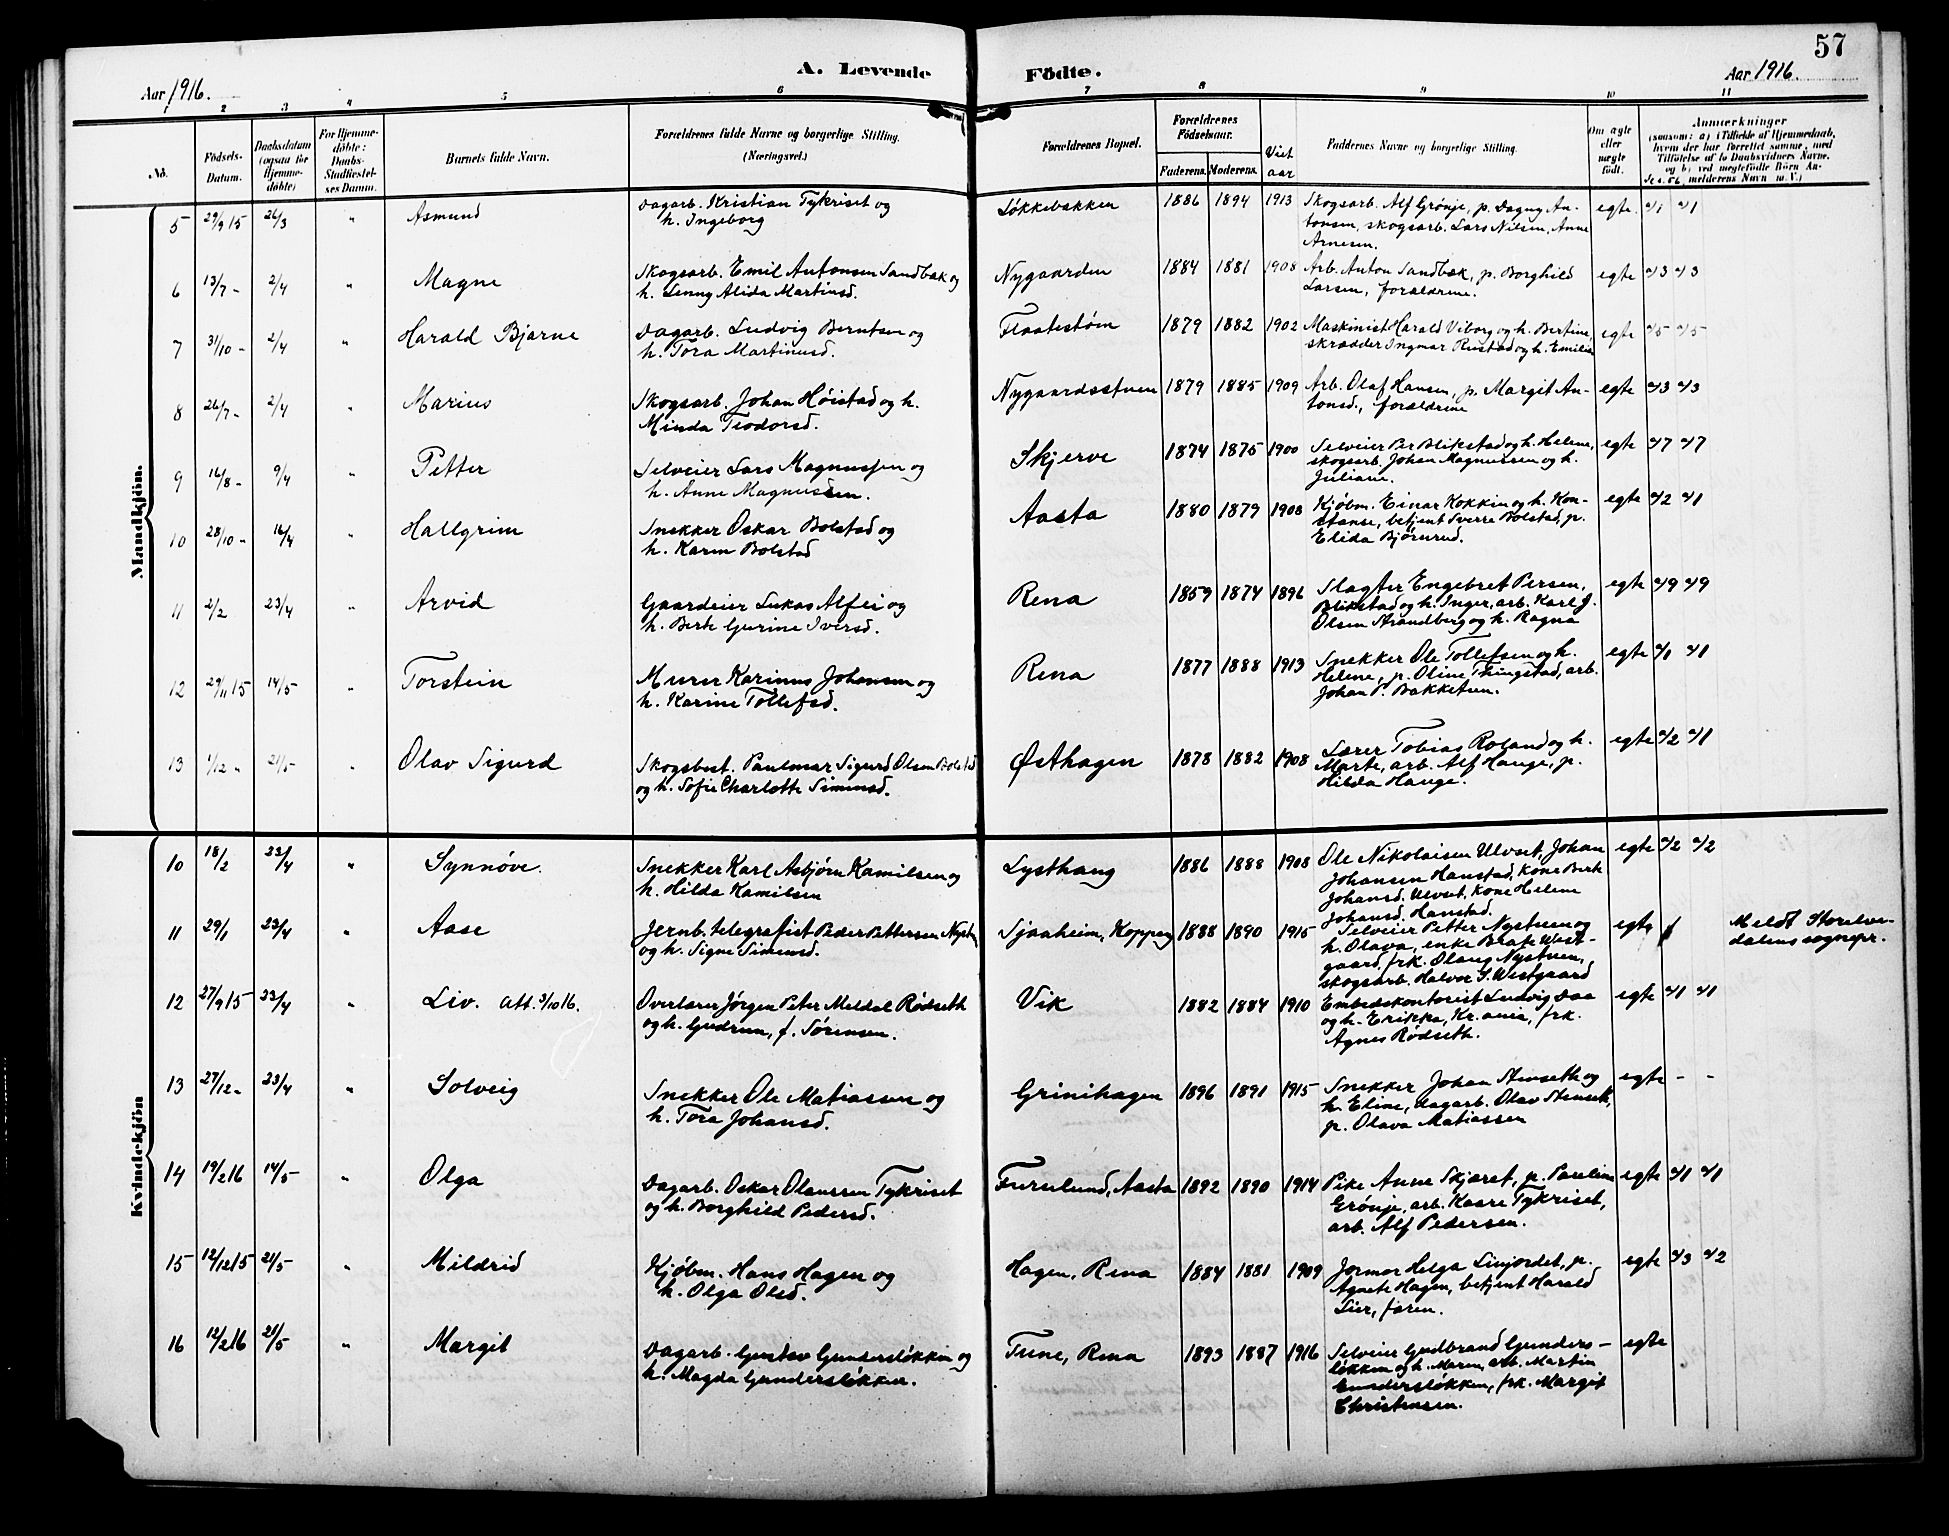 57
A. Levende Födte.
Aar 1916.
Aar 1916.
1 2 3 4 5 6 7 8 9 10 11
No.
Födsels-Datum.
Daabsdatum (ogsaa for Hjemmedöbte)
For Hjemmedöbte: Daabs-Stadfæstelses Datum.
Barnets fulde Navn.
Forældrenes fulde Navne og borgerlige Stilling. (Næringsvei.)
Forældrenes Bopæl.
Forældrenes Födselsaar.
Faderens. Moderens.
Viet aar
Faddernes Navne og borgerlige Stilling.
Om ægte eller uægte født.
Anmærkninger
(saasom: a) i Tilfælde af Hjemmedaab, hvem der har forrettet samme, med Tilföielse af to Daabsvidners Navne, og b) ved uegtefödte Börn Anmelderens Navn m.V.)
Mandkjön.
5 29/9 15 26/3 " Asmund Dagarb. Kristian Tykriset og Løkkebakken 1886 1894 1913 Skogsarb. Alf Grønje, p. Dagny An- egte 1 1
h. Ingeborg tonsen, skogsarb. Lars Nilsen, Anne
Arnesen.
6 13/7 - 2/4 " Magne Skogsarb. Emil Antonsen Sandbæk og Nygaarden 1884 1881 1908 Arb. Anton Sandbæk, p. Borghild egte 3 3
h. Jenny Alida Martinsd. Larsen, forældrene.
7 31/10 - 2/4 " Harald Bjarne Dagarb. Ludvig Berntsen og Flaatestøm 1879 1882 1902 Maskinist Harald Viborg og h. Bertine, egte 5 5
h. Tora Martinusd. skrædder Ingmar Rustad og h. Emilie
8 26/7 - 2/4 " Marius Skogsarb. Johan Høistad og h. Nygaardsstuen 1879 1885 1909 Arb. Olaf Hansen, p. Margit An- egte 3 3
Minda Teodorsd. tonsd., forældrene
9 16/8 - 9/4 " Petter Selveier Lars Magnussen og Skjerve 1874 1875 1900 Selveier Per Blikstad og h. Helene, egte 7 7
h. Anne Magnussen. skogsarb. Johan Magnussen og h.
Juliane.
10 28/10 - 16/4 " Hallgrim Snekker Oskar Bolstad og Aasta 1880 1879 1908 Kjøbm. Einar Kokkin og h. Kon- egte 2 1
h. Karen Bolstad stanse, betjent Sverre Bolstad, p.
Elida Bjørnrud.
11 2/2 23/4 " Arvid Gaardeier Lukas Alfei og Rena 1859 1874 1896 Slagter Engebret Persen, egte 9 9
h. Berte Gurine Iversd. Blikstad og h. Inger, arb. Karl J.
Olsen Strandberg og h. Ragna
12 29/11 15 14/5 " Torstein Murer Karinus Johansen og Rena 1877 1888 1913 Snekker Ole Tollefsen og h. egte 1 1
h. Karine Tollefsd. Helene, p. Oline Thingstad, arb.
Johan P. Bakketuen.
13 1/12 " 21/5 " Olav Sigurd Skogsbest. Paulmar Sigurd Olsen Bolstad Østhagen 1878 1882 1908 Lærer Tobias Roland og h. egte 2 1
og h. Sofie Charlotte Simensd. Marte, arb. Alf Hauge, p.
Hilda Hauge.
Kvindekjön
10 18/2 23/4 " Synnøve. Snekker Karl Asbjørn Kamilsen og Lysthaug 1886 1888 1908 Ole Nikolaisen Ulvset, Johan egte 2 2
h. Hilda Kamilsen Johansen Hanstad, kone Berte
Johansd. Ulvset, kone Helene
Johansd. Hanstad.
11 29/1 23/4 " Aase Jernb. telegrafist Peder Pettersen Nystu Sjaaheim, Koppang 1888 1890 1915 Selveier Petter Nystuen og egte Meldt Storelve-
og h. Signe Simensd. h. Olava, enke Beate West- dalens sognepr.
gaard, frk. Olaug Nystuen,
skogsarb. Halvor S. Westgaard
12 27/9 15 23/4 " Liv. att. 3/10 16. Overlærer Jørgen Peter Meldal Rødseth Vik 1882 1884 1910 Embedskontorist Ludvig Daa egte 1 1
og h. Gudrun, f. Sørensen. og h. Erikka, Kr.ania, frk.
Agnes Rødseth.
13 27/12 - 23/4 " Solveig Snekker Ole Matiassen og Grinihagen 1896 1891 1915 Snekker Johan Stenseth og egte - -
h. Tora Johansd. h. Eline, dagarb. Olav Stenseth,
p. Olava Matiassen
14 19/2 16 14/5 " Olga Dagarb. Oskar Olaussen Tykriset Furulund, Aasta 1892 1890 1914 Pike Anne Skjæret, p. Pauline egte 1 1
og h. Borghild Pedersd. Grønje, arb. Kaare Tykriset,
arb. Alf Pedersen.
15 12/12 15 21/5 " Mildrid Kjøbm. Hans Hagen og Hagen, Rena 1884 1881 1909 Jormor Helga Linjordet, p. egte 3 2
h. Olga Olsd. Agnete Hagen, betjent Harald
Lier, faren.
16 12/2 16 21/5 " Margit Dagarb. Gustav Gundersløkken og Tune, Rena 1893 1887 1916 Selveier Gudbrand Gunders- egte
h. Magda Gundersløkken. løkken og h. Maren, arb. Martin
Gundersløkken, frk. Margit
Christensen.